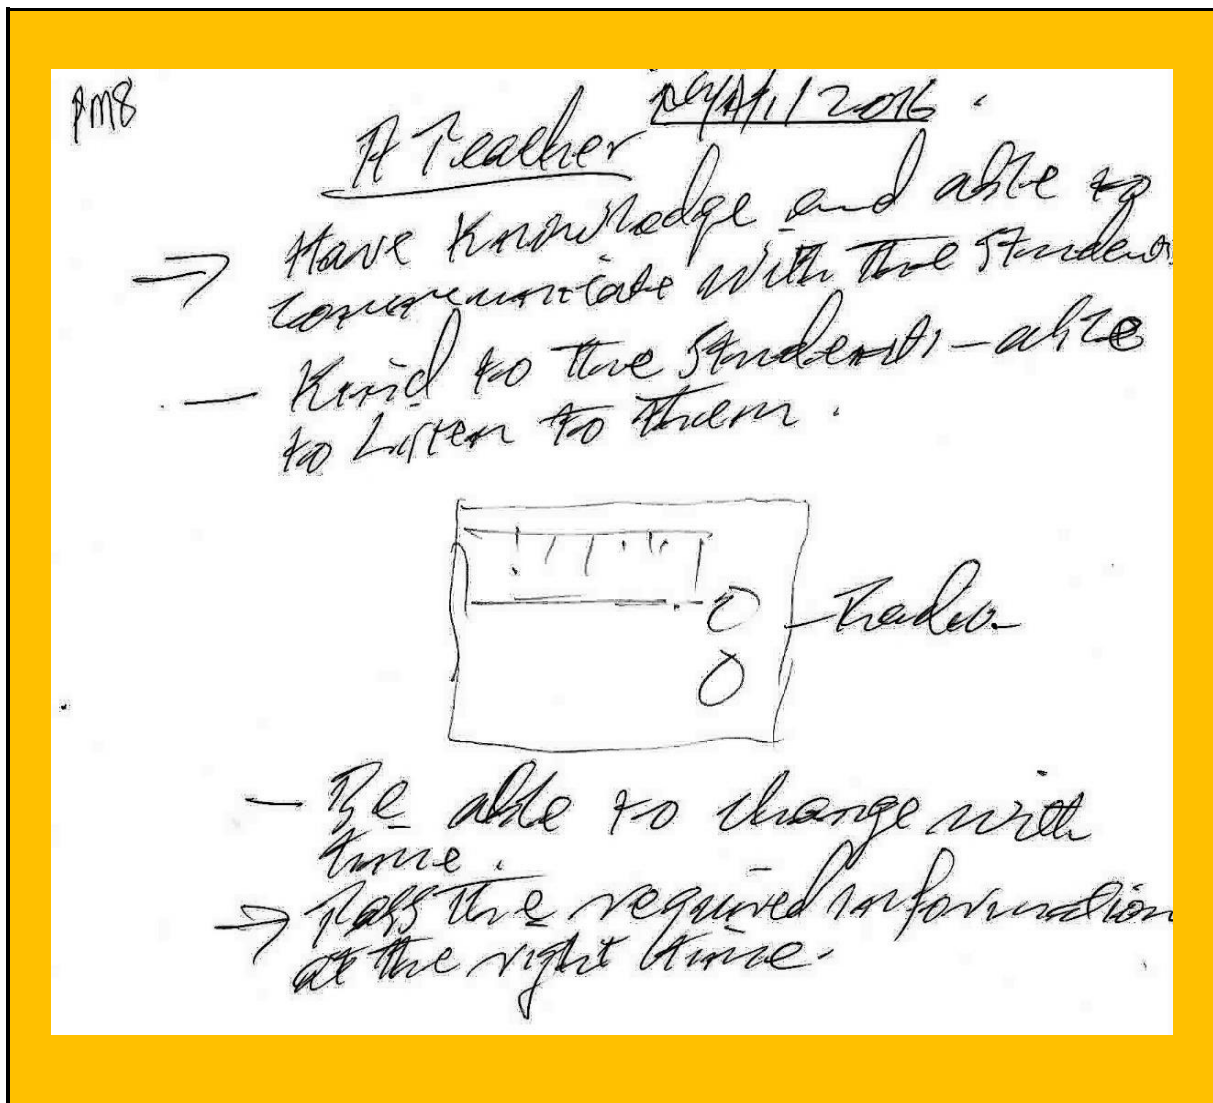 PM8
/2016.
A Teacher
→ Have Knowledge and able to
communicate with the students
- Kind to the students - able
to Listen to them.
- Radio
- Be able to change with
time.
→ Pass the required information
at the right time.